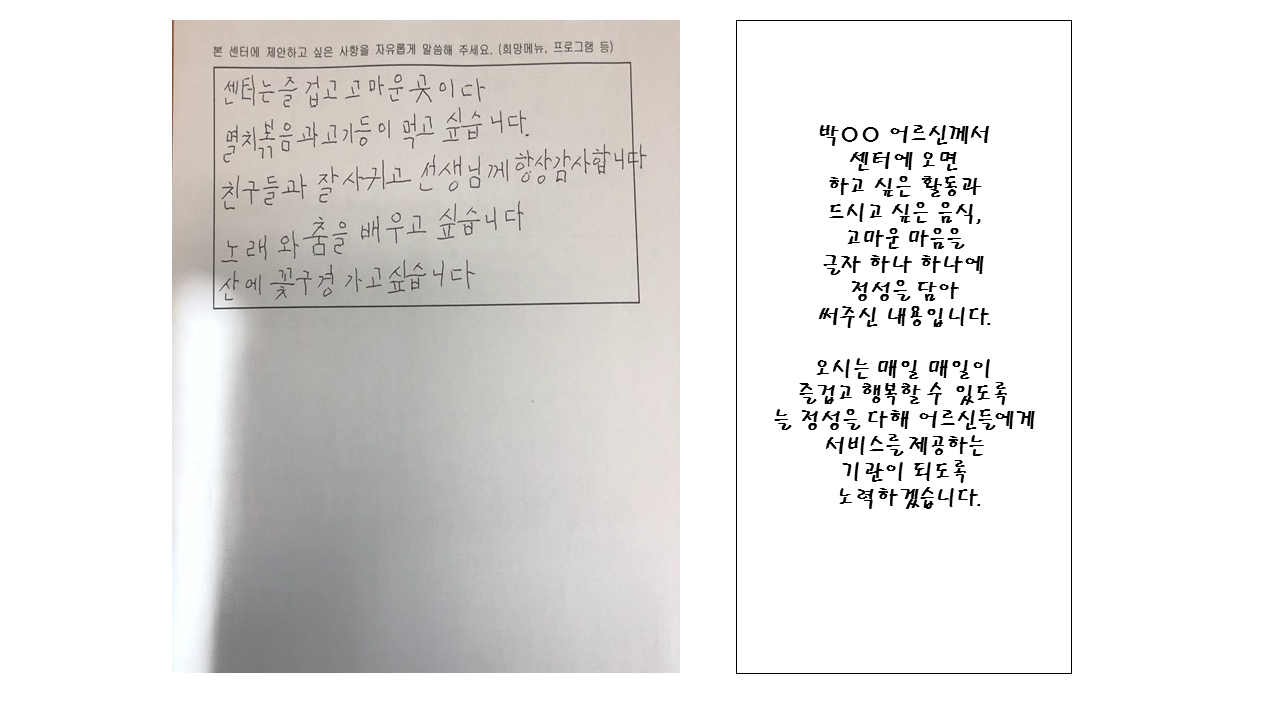 본 센터에 제안하고 싶은 사항을 자유롭게 말씀해 주세요. (희망메뉴, 프로그램 등)
센터는 즐겁고 고마운 곳이다
멸치볶음과 고기등이 먹고 싶습니다.
친구들과 잘 사귀고 선생님께 항상감사합니다
노래와 춤을 배우고 싶습니다
산에 꽃구경 가고싶습니다
박○○ 어르신께서
센터에 오면
하고 싶은 활동과
드시고 싶은 음식,
고마운 마음을
글자 하나 하나에
정성을 담아
써주신 내용입니다.
오시는 매일 매일이
즐겁고 행복할 수 있도록
늘 정성을 다해 어르신들에게
서비스를 제공하는
기관이 되도록
노력하겠습니다.